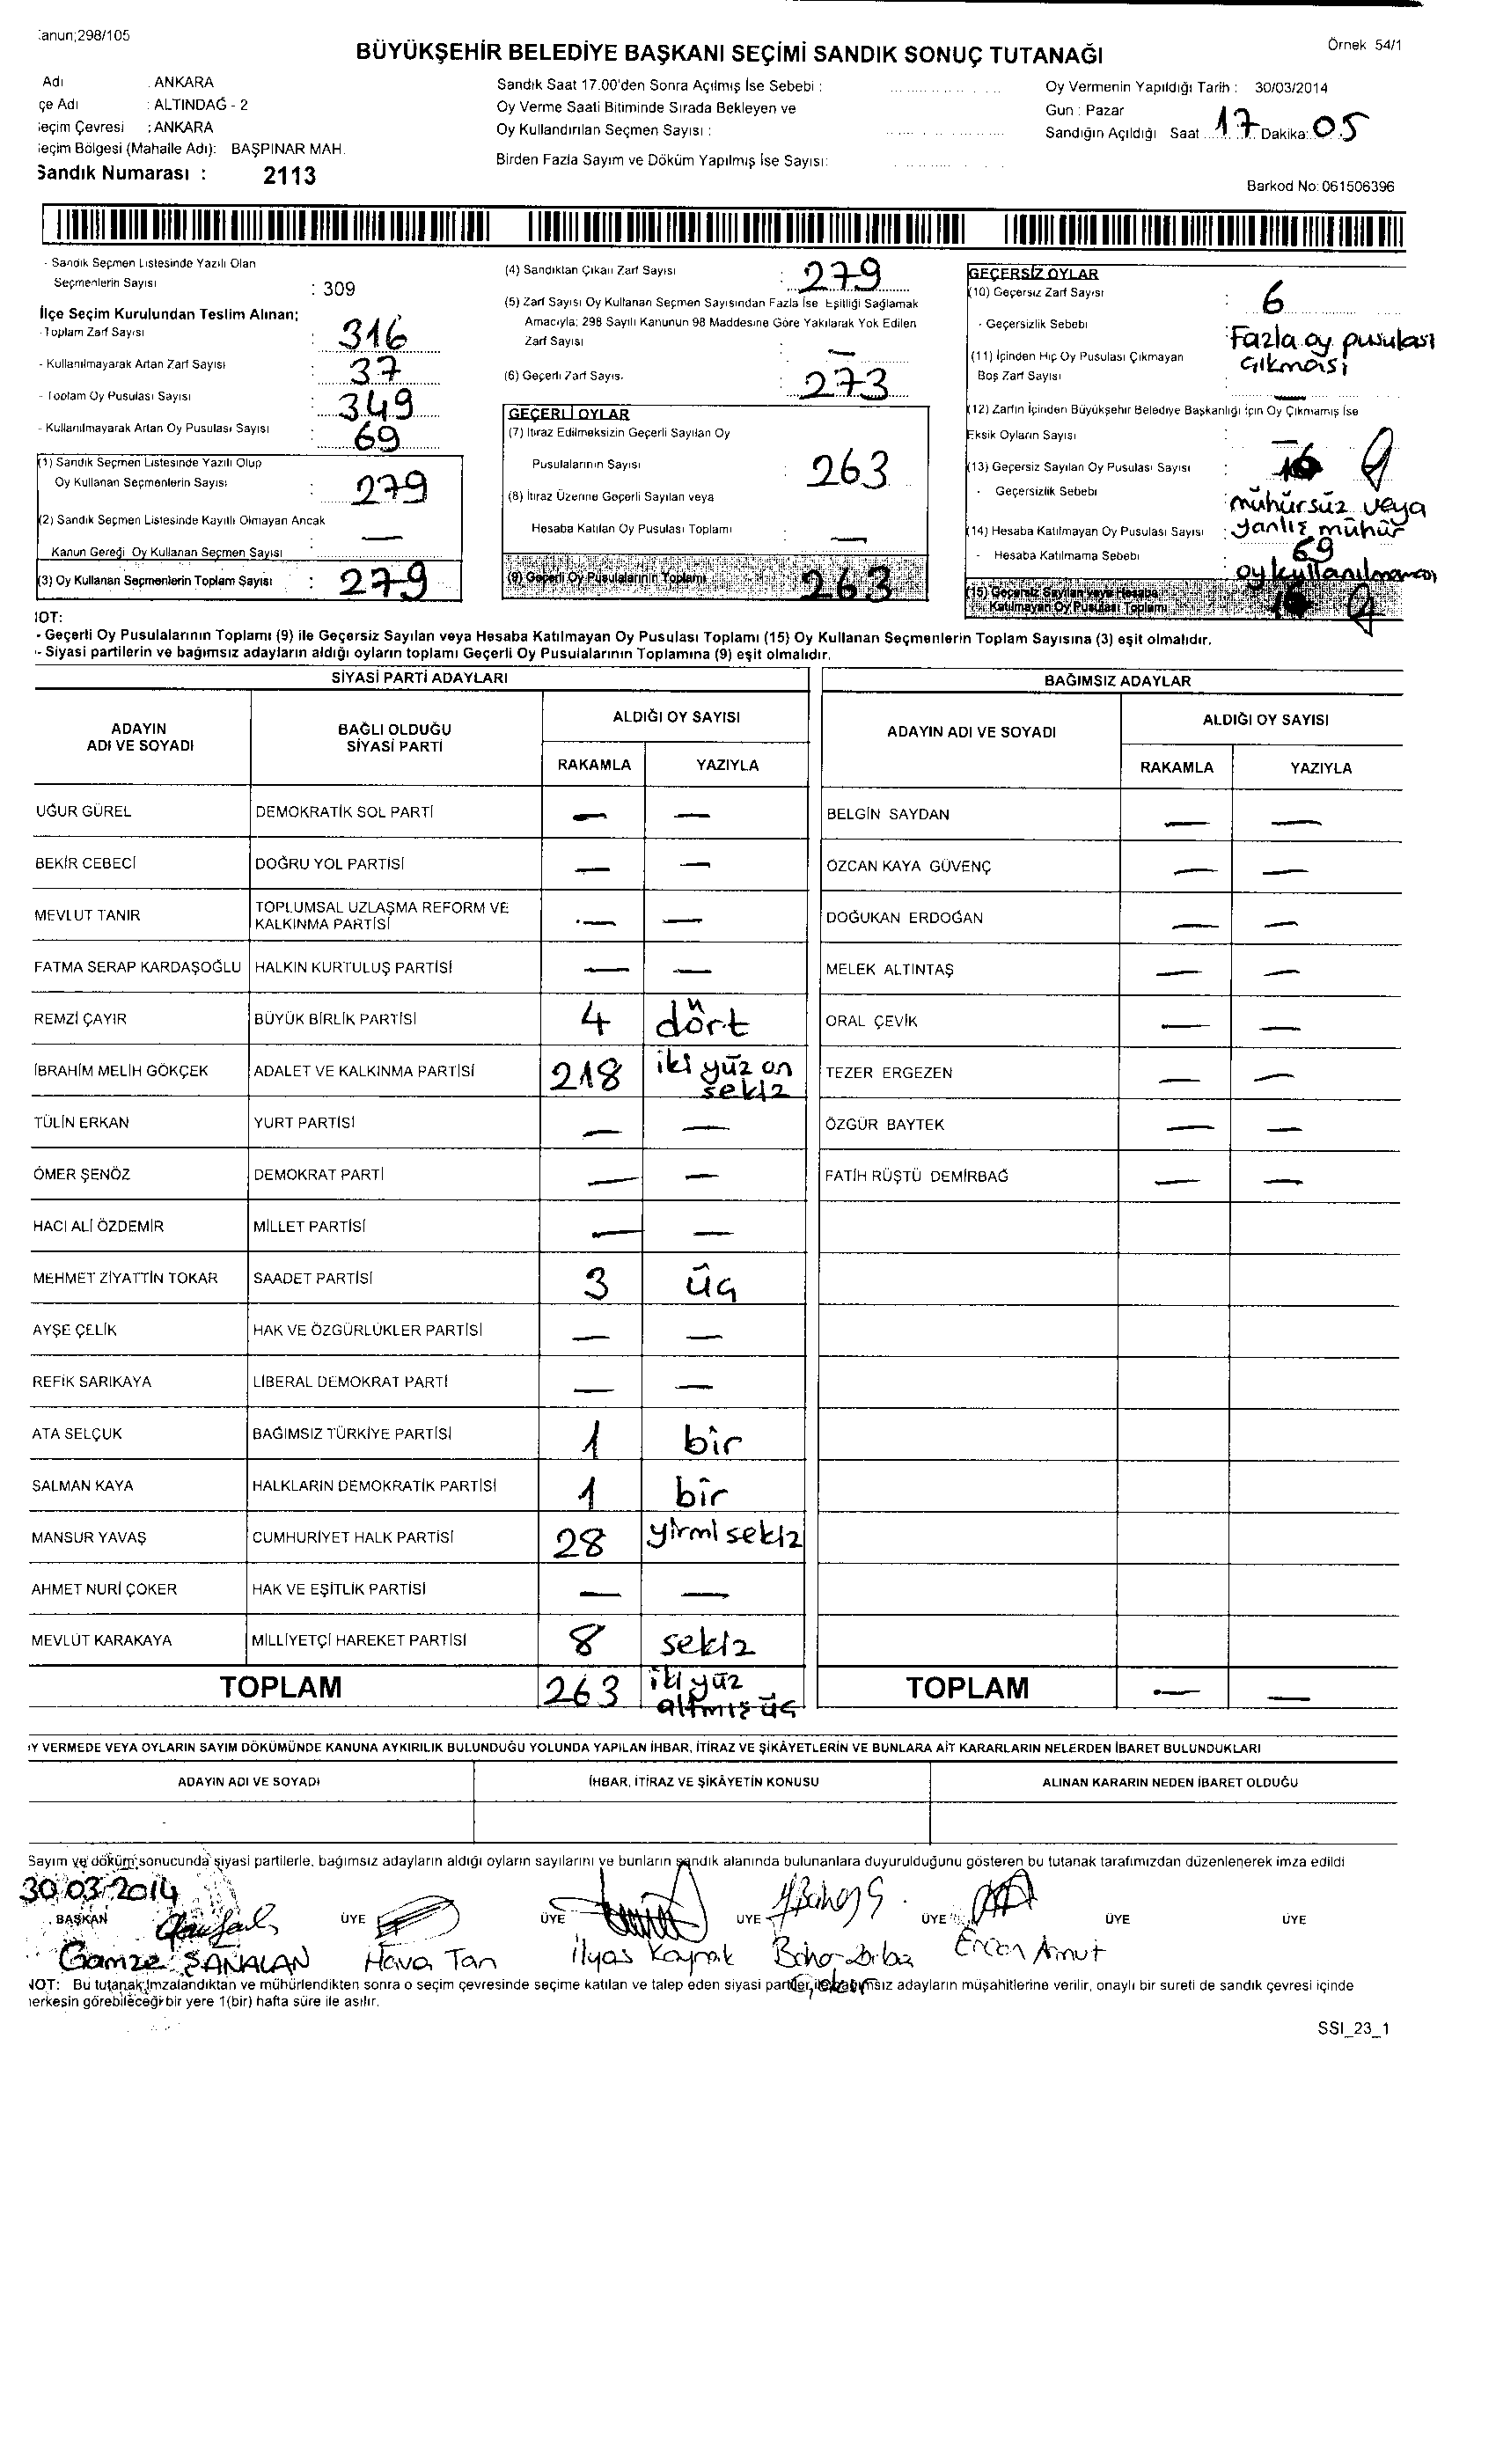 anun;298/105
BÜYÜKŞEHİR BELEDİYE BAŞKANI SEÇİMİ SANDIK SONUÇ TUTANAĞI
Örnek 54/1
Adı : ANKARA
çe Adı : ALTINDAĞ - 2
eçim Çevresi : ANKARA
eçim Bölgesi (Mahalle Adı): BAŞPINAR MAH.
Sandık Numarası : 2113
Sandık Saat 17.00'den Sonra Açılmış İse Sebebi :
Oy Verme Saati Bitiminde Sırada Bekleyen ve
Oy Kullandırılan Seçmen Sayısı :
Birden Fazla Sayım ve Döküm Yapılmış İse Sayısı:
Oy Vermenin Yapıldığı Tarih : 30/03/2014
Gün : Pazar
Sandığın Açıldığı Saat 17 Dakika: 05
Barkod No: 061506396
- Sandık Seçmen Listesinde Yazılı Olan
Seçmenlerin Sayısı : 309
İlçe Seçim Kurulundan Teslim Alınan;
- Toplam Zarf Sayısı : 316
- Kullanılmayarak Artan Zarf Sayısı : 37
- Toplam Oy Pusulası Sayısı : 349
- Kullanılmayarak Artan Oy Pusulası Sayısı : 69
(1) Sandık Seçmen Listesinde Yazılı Olup
Oy Kullanan Seçmenlerin Sayısı : 279
(2) Sandık Seçmen Listesinde Kayıtlı Olmayan Ancak
Kanun Gereği Oy Kullanan Seçmen Sayısı : —
(3) Oy Kullanan Seçmenlerin Toplam Sayısı : 279
(4) Sandıktan Çıkan Zarf Sayısı : 279
(5) Zarf Sayısı Oy Kullanan Seçmen Sayısından Fazla İse Eşitliği Sağlamak
Amacıyla; 298 Sayılı Kanunun 98 Maddesine Göre Yakılarak Yok Edilen
Zarf Sayısı : —
(6) Geçerli Zarf Sayısı : 273
GEÇERLİ OYLAR
(7) İtiraz Edilmeksizin Geçerli Sayılan Oy
Pusulalarının Sayısı : 263
(8) İtiraz Üzerine Geçerli Sayılan veya
Hesaba Katılan Oy Pusulası Toplamı : —
(9) Geçerli Oy Pusulalarının Toplamı : 263
GEÇERSİZ OYLAR
(10) Geçersiz Zarf Sayısı : 6
- Geçersizlik Sebebi : Fazla oy pusulası
çıkması
(11) İçinden Hiç Oy Pusulası Çıkmayan
Boş Zarf Sayısı :
(12) Zarfın İçinden Büyükşehir Belediye Başkanlığı İçin Oy Çıkmamış İse
Eksik Oyların Sayısı : —
(13) Geçersiz Sayılan Oy Pusulası Sayısı :
- Geçersizlik Sebebi : mühürsüz veya
yanlış mühür
(14) Hesaba Katılmayan Oy Pusulası Sayısı : 69
- Hesaba Katılmama Sebebi : oy kullanılmaması
(15) Geçersiz Sayılan veya Hesaba
Katılmayan Oy Pusulası Toplamı
NOT:
- Geçerli Oy Pusulalarının Toplamı (9) ile Geçersiz Sayılan veya Hesaba Katılmayan Oy Pusulası Toplamı (15) Oy Kullanan Seçmenlerin Toplam Sayısına (3) eşit olmalıdır.
- Siyasi partilerin ve bağımsız adayların aldığı oyların toplamı Geçerli Oy Pusulalarının Toplamına (9) eşit olmalıdır.
SİYASİ PARTİ ADAYLARI
ADAYIN ADI VE SOYADI BAĞLI OLDUĞU SİYASİ PARTİ ALDIĞI OY SAYISI
RAKAMLA YAZIYLA
UĞUR GÜREL DEMOKRATİK SOL PARTİ — —
BEKİR CEBECİ DOĞRU YOL PARTİSİ — —
MEVLUT TANIR TOPLUMSAL UZLAŞMA REFORM VE KALKINMA PARTİSİ — —
FATMA SERAP KARDAŞOĞLU HALKIN KURTULUŞ PARTİSİ — —
REMZİ ÇAYIR BÜYÜK BİRLİK PARTİSİ 4 dört
İBRAHİM MELİH GÖKÇEK ADALET VE KALKINMA PARTİSİ 218 iki yüz on sekiz
TÜLİN ERKAN YURT PARTİSİ — —
ÖMER ŞENÖZ DEMOKRAT PARTİ — —
HACI ALİ ÖZDEMİR MİLLET PARTİSİ — —
MEHMET ZİYATTİN TOKAR SAADET PARTİSİ 3 üç
AYŞE ÇELİK HAK VE ÖZGÜRLÜKLER PARTİSİ — —
REFİK SARIKAYA LİBERAL DEMOKRAT PARTİ — —
ATA SELÇUK BAĞIMSIZ TÜRKİYE PARTİSİ 1 bir
SALMAN KAYA HALKLARIN DEMOKRATİK PARTİSİ 1 bir
MANSUR YAVAŞ CUMHURİYET HALK PARTİSİ 28 yirmi sekiz
AHMET NURİ ÇOKER HAK VE EŞİTLİK PARTİSİ — —
MEVLÜT KARAKAYA MİLLİYETÇİ HAREKET PARTİSİ 8 sekiz
TOPLAM 263 iki yüz altmış üç
BAĞIMSIZ ADAYLAR
ADAYIN ADI VE SOYADI ALDIĞI OY SAYISI
RAKAMLA YAZIYLA
BELGİN SAYDAN — —
ÖZCAN KAYA GÜVENÇ — —
DOĞUKAN ERDOĞAN — —
MELEK ALTINTAŞ — —
ORAL ÇEVİK — —
TEZER ERGEZEN — —
ÖZGÜR BAYTEK — —
FATİH RÜŞTÜ DEMİRBAĞ — —
TOPLAM — —
Y VERMEDE VEYA OYLARIN SAYIM DÖKÜMÜNDE KANUNA AYKIRILIK BULUNDUĞU YOLUNDA YAPILAN İHBAR, İTİRAZ VE ŞİKÂYETLERİN VE BUNLARA AİT KARARLARIN NELERDEN İBARET BULUNDUKLARI
ADAYIN ADI VE SOYADI İHBAR, İTİRAZ VE ŞİKÂYETİN KONUSU ALINAN KARARIN NEDEN İBARET OLDUĞU
Sayım ve döküm sonucunda siyasi partilerle, bağımsız adayların aldığı oyların sayılarını ve bunların sandık alanında bulunanlara duyurulduğunu gösteren bu tutanak tarafımızdan düzenlenerek imza edildi
30.03.2014
BAŞKAN ÜYE ÜYE ÜYE ÜYE ÜYE ÜYE
Gamze ŞANALAN Hava Tan İlyas Kaynak
NOT: Bu tutanak imzalandıktan ve mühürlendikten sonra o seçim çevresinde seçime katılan ve talep eden siyasi partiler, ile bağımsız adayların müşahitlerine verilir, onaylı bir sureti de sandık çevresi içinde
herkesin görebileceği bir yere 1(bir) hafta süre ile asılır.
SSI_23_1